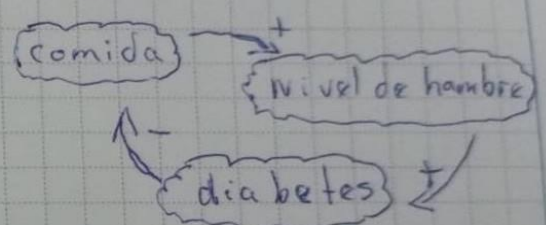 +
comida
nivel de hambre
-
+
diabetes